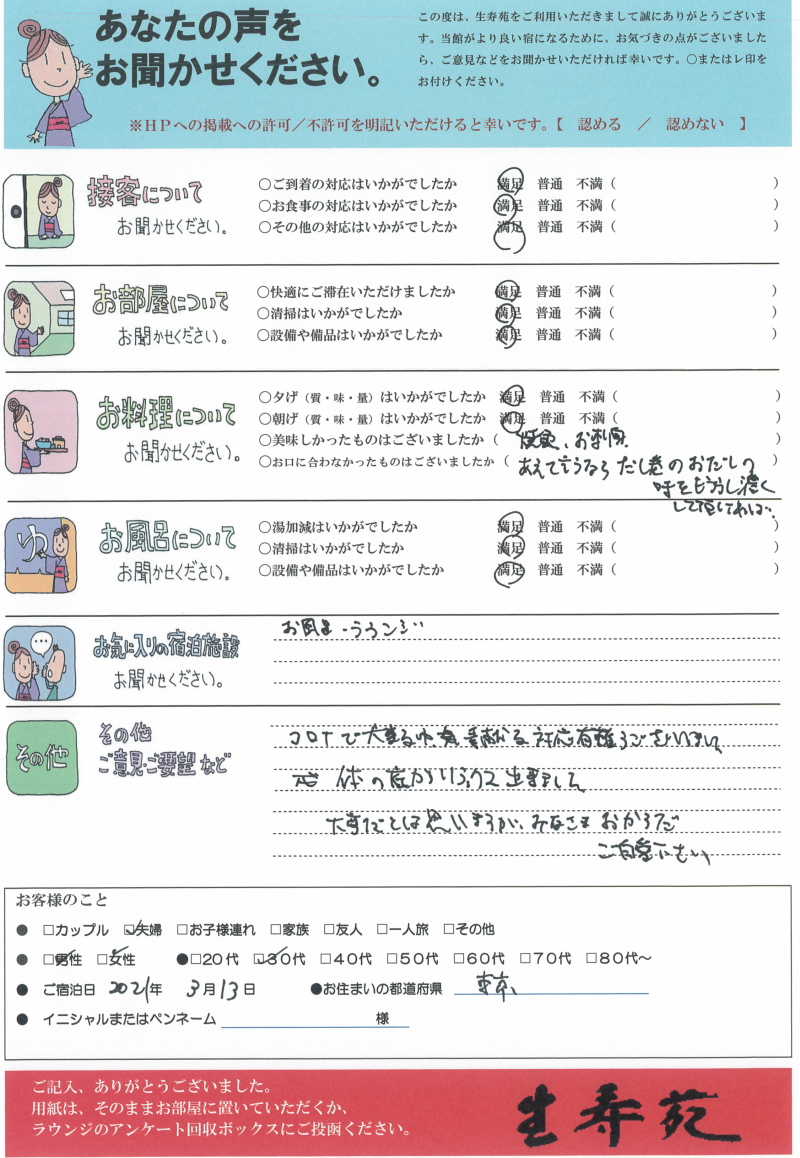 あなたの声を
お聞かせください。
この度は、生寿苑をご利用いただきまして誠にありがとうございま
す。当館がより良い宿になるために、お気づきの点がございました
ら、ご意見などをお聞かせいただければ幸いです。○またはレ印を
お付けください。
※HPへの掲載への許可／不許可を明記いただけると幸いです。【 認める ／ 認めない 】
接客について
お聞かせください。
○ご到着の対応はいかがでしたか 満足 普通 不満（ ）
○お食事の対応はいかがでしたか 満足 普通 不満（ ）
○その他の対応はいかがでしたか 満足 普通 不満（ ）
お部屋について
お聞かせください。
○快適にご滞在いただけましたか 満足 普通 不満（ ）
○清掃はいかがでしたか 満足 普通 不満（ ）
○設備や備品はいかがでしたか 満足 普通 不満（ ）
お料理について
お聞かせください。
○夕げ（質・味・量）はいかがでしたか 満足 普通 不満（ ）
○朝げ（質・味・量）はいかがでしたか 満足 普通 不満（ ）
○美味しかったものはございましたか（ ）
○お口に合わなかったものはございましたか（ あえて言うなら だし巻のおだしの ）
味をもう少し濃く
して頂ければ..
お風呂について
お聞かせください。
○湯加減はいかがでしたか 満足 普通 不満（ ）
○清掃はいかがでしたか 満足 普通 不満（ ）
○設備や備品はいかがでしたか 満足 普通 不満（ ）
お気に入りの宿泊施設
お聞かせください。
お風呂・ラウンジ
その他
その他
ご意見・ご要望など
コロナで大変な中、対応有難うございました
体の底からリラックス出来ました
大変だとは思いますが、みなさま おからだ
ご自愛下さい
お客様のこと
● □カップル □夫婦 □お子様連れ □家族 □友人 □一人旅 □その他
● □男性 □女性 ●□20代 □30代 □40代 □50代 □60代 □70代 □80代〜
● ご宿泊日 2021年 3月13日 ●お住まいの都道府県 東京
● イニシャルまたはペンネーム 様
ご記入、ありがとうございました。
用紙は、そのままお部屋に置いていただくか、
ラウンジのアンケート回収ボックスにご投函ください。
生寿苑